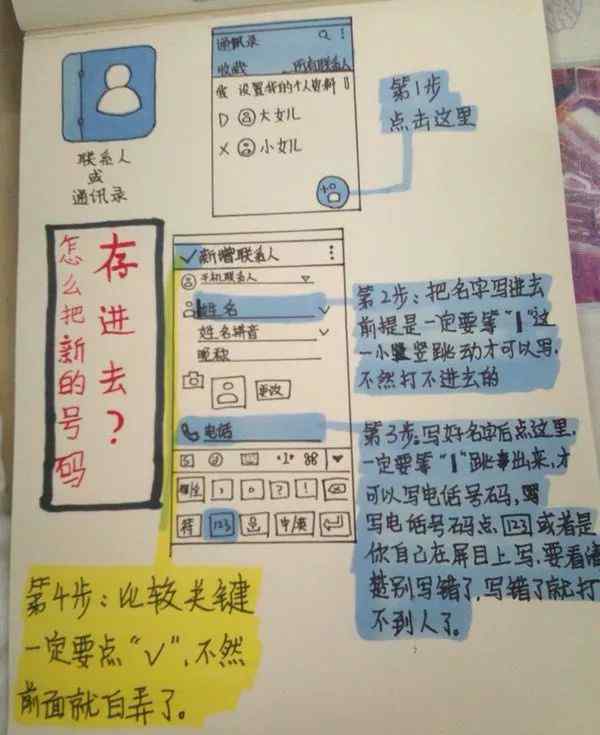 联系人
或
通讯录
通讯录
收藏 所有联系人
设置我的个人资料
D 大女儿
X 小女儿
第1步
点击这里
怎么把新的号码
存进去？
✓新增联系人
手机联系人
姓名
姓名拼音
昵称
更改
电话
， 。 ？ ！
符 123 中/英
第2步：把名字写进去
前提是一定要等“|”这
一小竖竖跳动才可以写，
不然打不进去的
第3步：写好名字后点这里，
一定要等“|”跳出来，才
可以写电话号码，
写电话号码点 123 或者是
你自己在屏目上写，要看清
楚别写错了，写错了就打
不到人了。
第4步：比较关键
一定要点“✓”，不然
前面就白弄了。